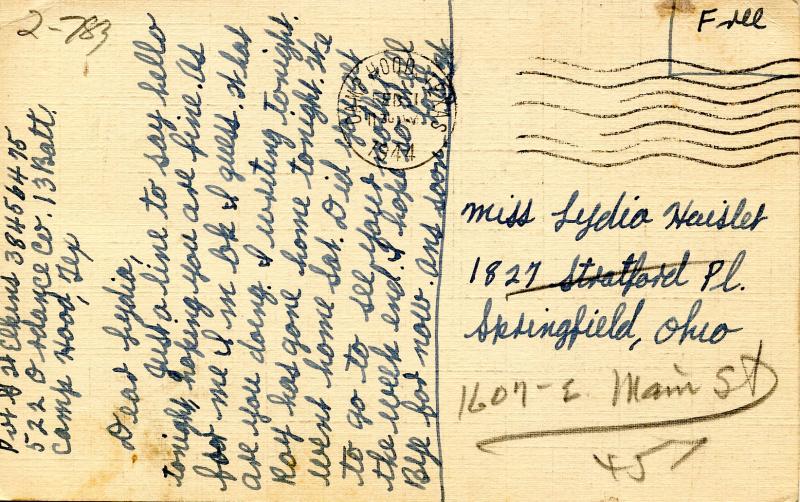 2-783
Pvt H H Elkins 38456475
522 Ordance Co. 13 Batt.
Camp Hood, Tex
Dear Lydia,
Just a line to say hello
tonight, hoping you are fine. as
for me I'm ok I guess. What
are you doing. I writing tonight.
Ray has gone home tonight. He
went home Sat. Did you get
to go to see your mother
the week end. I hope so
Bye for now. ans soon
HOOD TEXAS
1944
Free
Miss Lydia Haislet
1827 Stratford Pl.
Springfield, Ohio
1607-E Main St
45